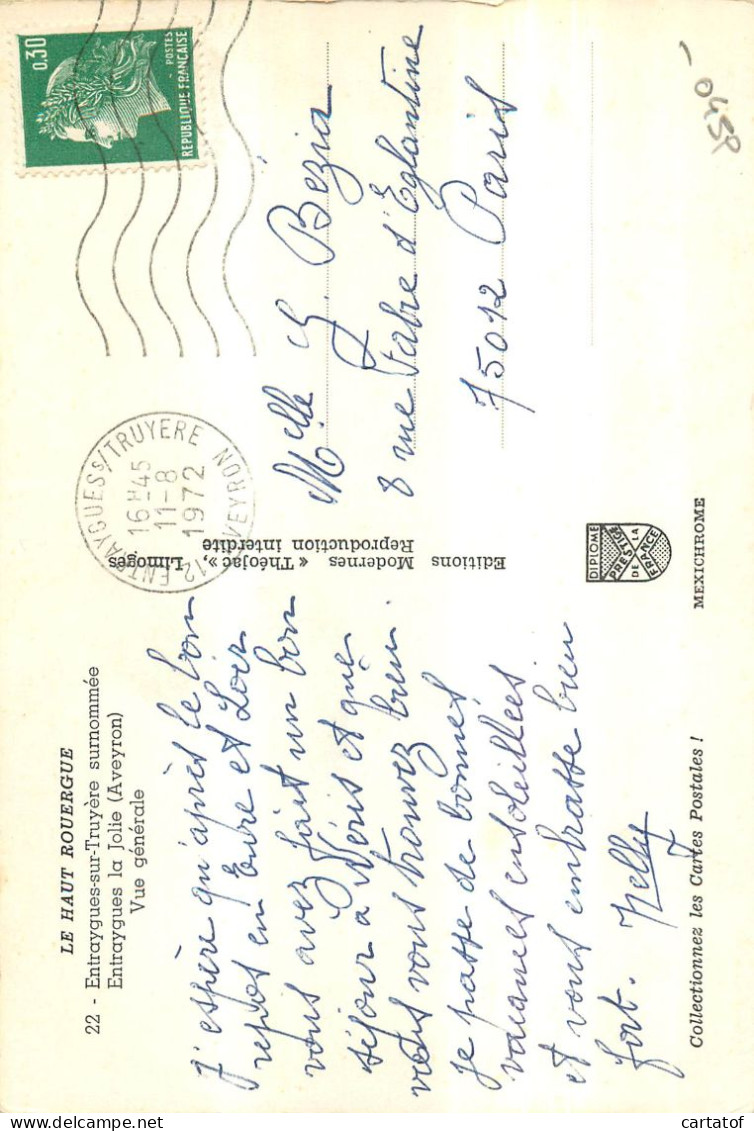 LE HAUT ROUERGUE
22 - Entraygues-sur-Truyère surnommée
Entraygues la Jolie (Aveyron)
Vue générale
J'espère qu'après le bon
repos en Eure et Loir
vous avez fait un bon
séjour à Néris et que
vous vous trouvez bien.
je passe de bonnes
vacances ensoleillées
et vous embrasse bien
fort. Nelly
Collectionnez les Cartes Postales !
Editions Modernes « Théojac », Limoges
Reproduction interdite
12 ENTRAYGUES S/TRUYERE AVEYRON
16 H 45
11-8
1972
0,30
POSTES
REPUBLIQUE FRANÇAISE
Melle G. Bézia
8 rue Fabre d'Eglantine
75012 Paris
DIPLOME
PRESTIGE
DE LA
FRANCE
MEXICHROME
cartatof